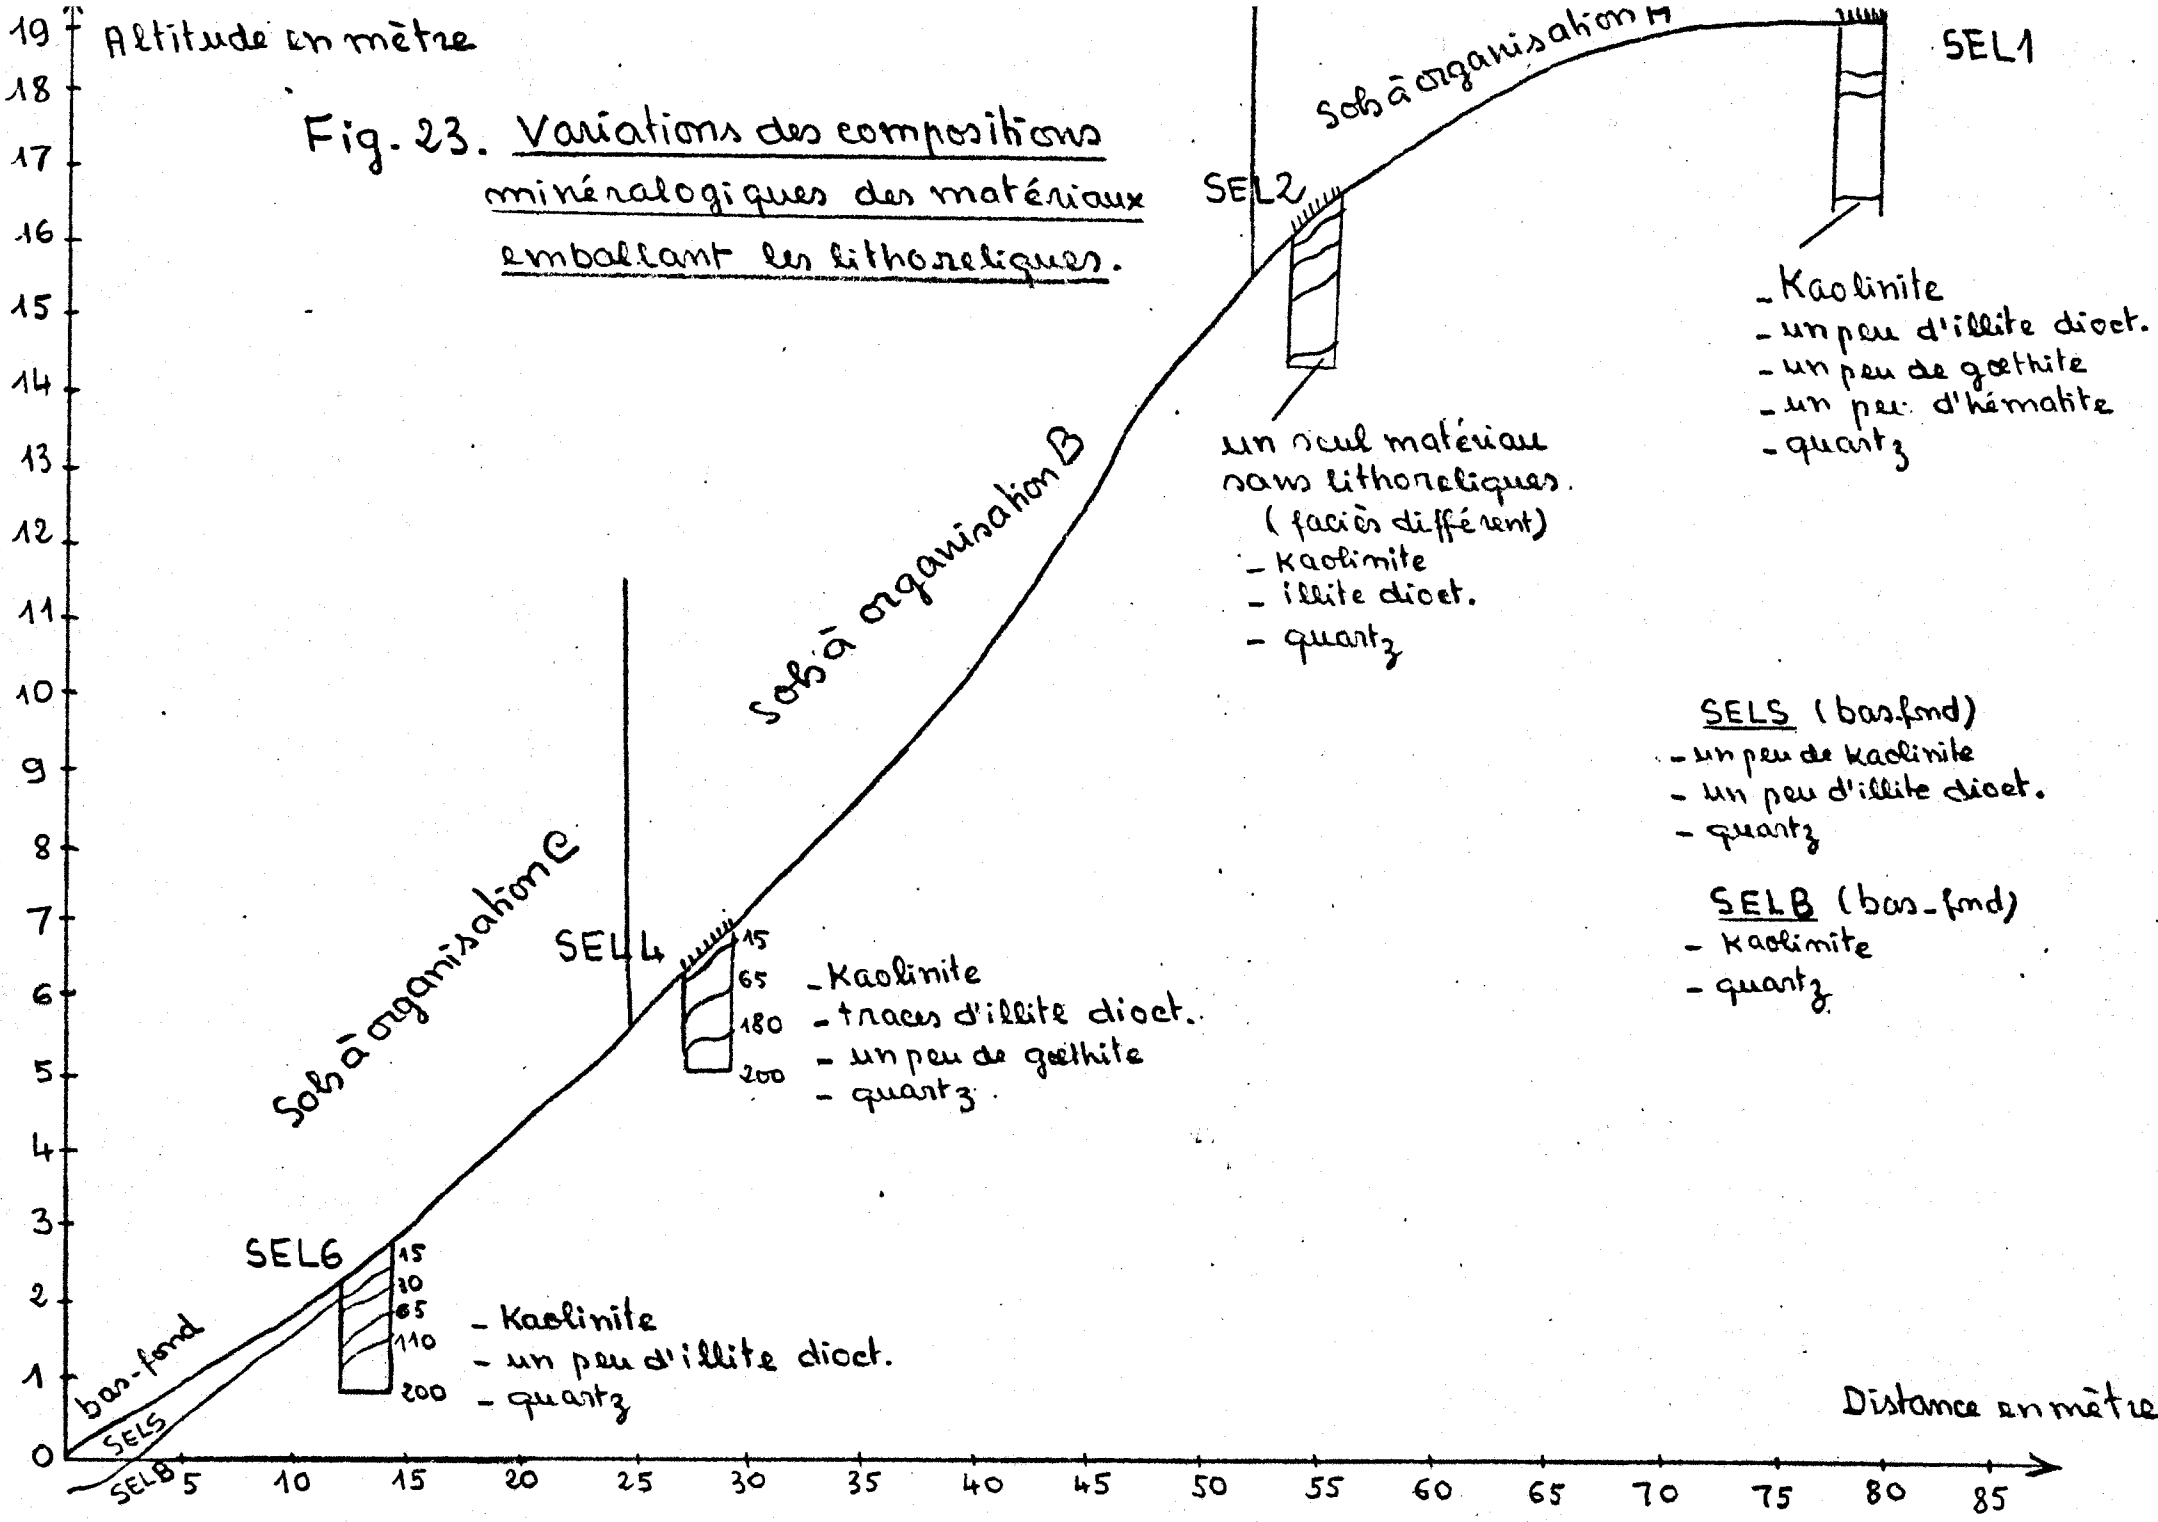 Altitude en mètre
Fig. 23. Variations des compositions
minéralogiques des matériaux
emballant les lithoreliques.
19
18
17
16
15
14
13
12
11
10
9
8
7
6
5
4
3
2
1
0
Sols à organisation A
SEL1
- Kaolinite
- un peu d'illite dioct.
- un peu de gœthite
- un peu d'hématite
- quartz
SEL2
un seul matériau
sans lithoreliques.
(faciès différent)
- Kaolinite
- illite dioct.
- quartz
Sols à organisation B
SELS (bas-fond)
- un peu de kaolinite
- un peu d'illite dioct.
- quartz
SELB (bas-fond)
- Kaolinite
- quartz
Sols à organisation C
SEL4
15
65
180
200
- Kaolinite
- traces d'illite dioct.
- un peu de gœthite
- quartz.
SEL6
15
30
65
110
200
- Kaolinite
- un peu d'illite dioct.
- quartz
bas-fond
SELS
SELB
Distance en mètre
5 10 15 20 25 30 35 40 45 50 55 60 65 70 75 80 85